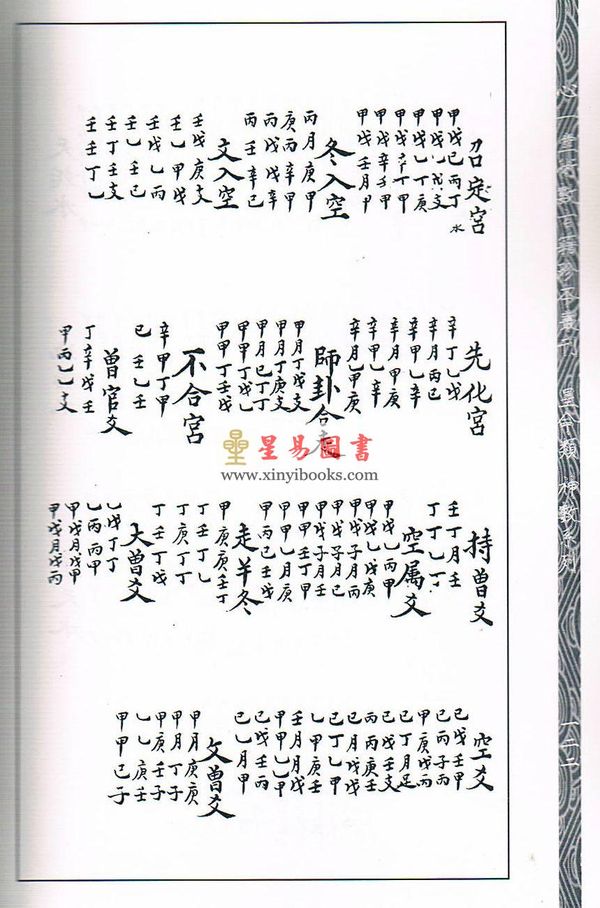 心一堂術數古籍珍本叢刊 星命類 神數系列
一二二
定宮
甲戊己丙丁
水
甲戊乙戊支
甲戊乙丁庚
冬入空
丙月庚甲
庚丙辛甲
丙戊戊辛
丙壬辛己
文入空
壬戊庚支
壬乙甲戊
壬戊乙丙
壬乙壬己
壬丁壬支
壬壬丁乙
先化宮
辛丁乙戊
辛月丙己
辛月甲庚
辛甲乙辛
師卦合走
甲月丁戊支
甲月丁庚支
甲月己丁丁
甲甲丁戊乙
甲甲丁壬戊
不合宮
辛甲丁甲
己壬乙壬
曾官爻
丁辛戊壬
甲丙乙乙支
持曾爻
壬丁月壬
丁丁乙丁
空属爻
甲戊乙丙甲
甲戊乙戊庚
甲戊子月丙
甲戊子月己
甲丙己壬戊
走羊冬
甲庚庚壬丁
丁壬丁乙
丁庚丁丁
丁壬丁戊
大曾爻
乙戊丁丁
乙丙丙甲
甲戊月戊甲
甲戊月戊丙
空爻
己戊壬甲
己丙子丙
甲庚戊丙
己丁月走
己戊壬支
丙丙庚壬
己月戊戊
己丁乙甲
乙甲庚壬
壬月月戊
甲甲乙甲
己戊壬丙
己乙月甲
文曾爻
甲月庚庚
甲月丁子
甲庚壬子
乙乙庚壬
甲甲己子
星易圖書
www.xinyibooks.com